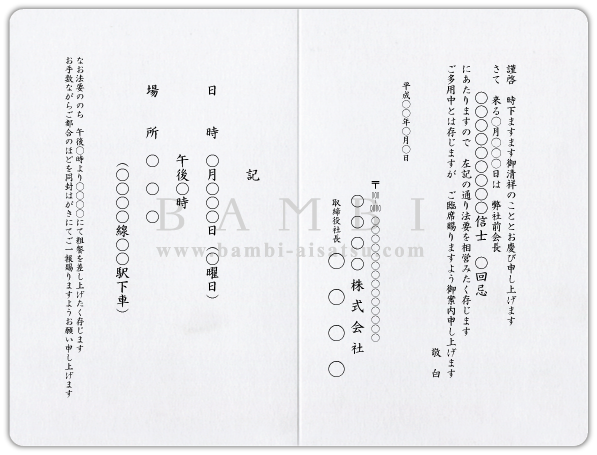 謹啓　時下ますます御清祥のこととお慶び申し上げます
さて　来る〇月〇〇日は　弊社前会長
〇〇〇〇〇〇〇〇信士　〇回忌
にあたりますので　左記の通り法要を相営みたく存じます
ご多用中とは存じますが　ご臨席賜りますよう御案内申し上げます
敬白
平成〇〇年〇月〇日
〇〇〇〇〇株式会社
取締役社長　〇〇〇〇
記
日時　〇月〇〇〇日（〇曜日）
午後〇時
場所　〇〇〇
（〇〇〇〇線〇〇駅下車）
なお法要ののち　午後〇時より〇〇〇〇にて粗餐を差し上げたく存じます
お手数ながらご都合のほどを同封はがきにてご一報賜りますようお願い申し上げます
BAMBI
www.bambi-aisatsu.com